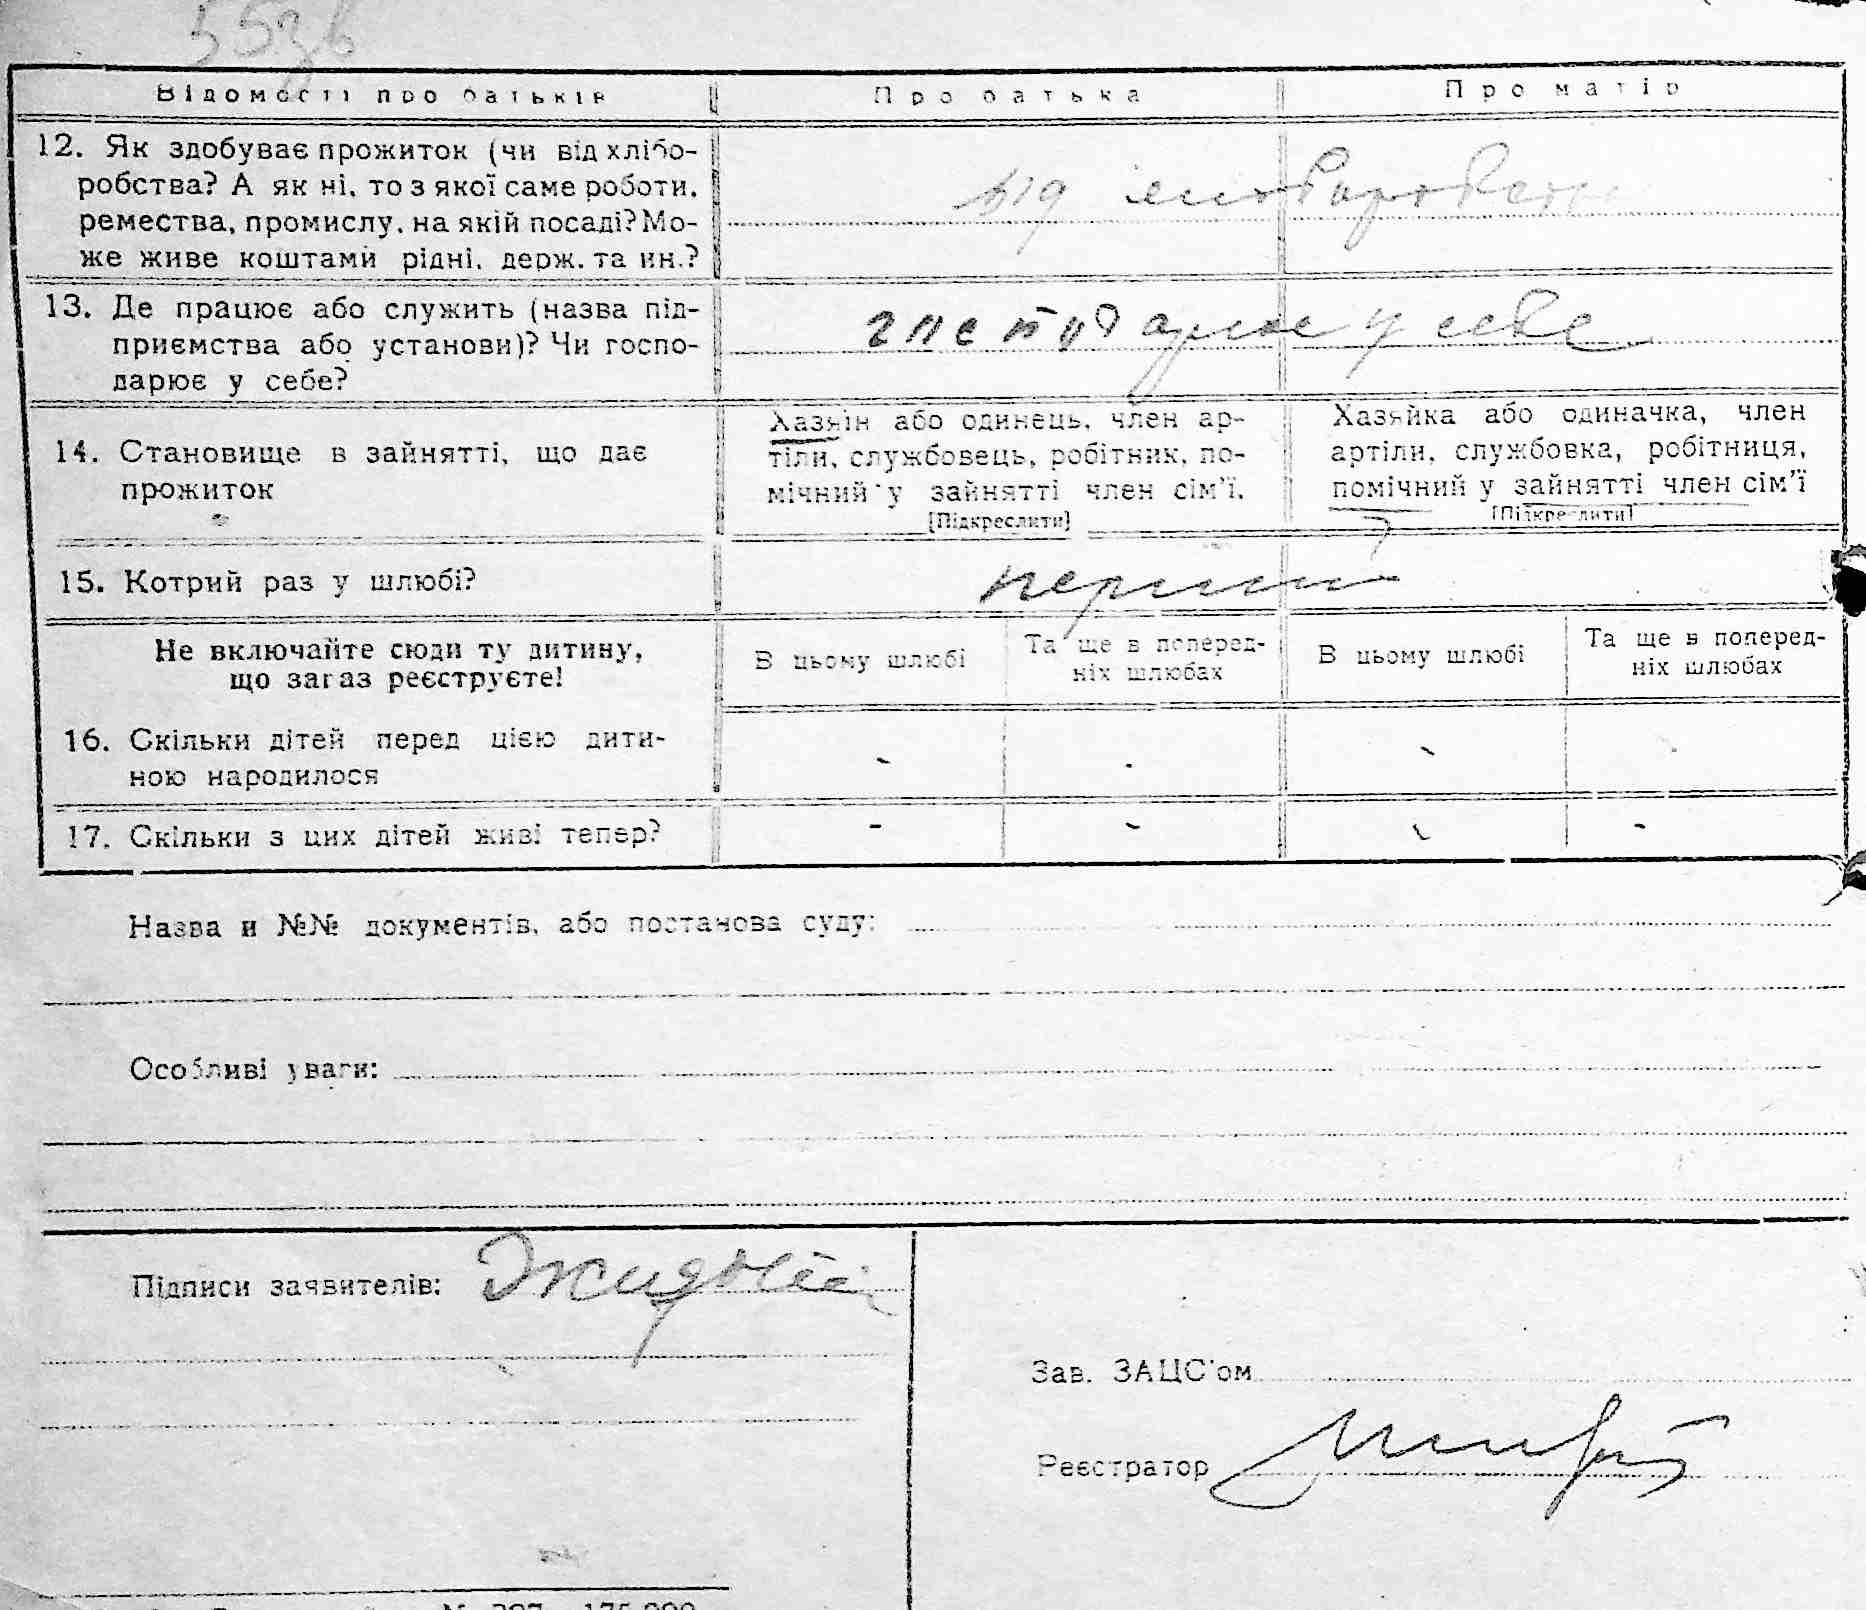 Відомості про батьків Про батька Про матір
12. Як здобуває прожиток (чи від хлібо-
робства? А як ні, то з якої саме роботи,
ремества, промислу, на якій посаді? Мо-
же живе коштами рідні, держ. та ин.?
від хліборобств
13. Де працює або служить (назва під-
приємства або установи)? Чи госпо-
дарює у себе?
господарює у себе
14. Становище в зайнятті, що дає
прожиток
Хазяїн або одинець, член ар-
тіли, службовець, робітник, по-
мічний у зайнятті член сім'ї.
[Підкреслити]
Хазяйка або одиначка, член
артіли, службовка, робітниця,
помічний у зайнятті член сім'ї
[Підкреслити]
15. Котрий раз у шлюбі?
перший
Не включайте сюди ту дитину,
що зараз реєструєте!
В цьому шлюбі
Та ще в поперед-
ніх шлюбах
В цьому шлюбі
Та ще в поперед-
ніх шлюбах
16. Скільки дітей перед цією дити-
ною народилося
- - - -
17. Скільки з цих дітей живі тепер?
- - - -
Назва и №№ документів, або постанова суду:
Особливі уваги:
Підписи заявителів:
Зав. ЗАЦС'ом
Реєстратор